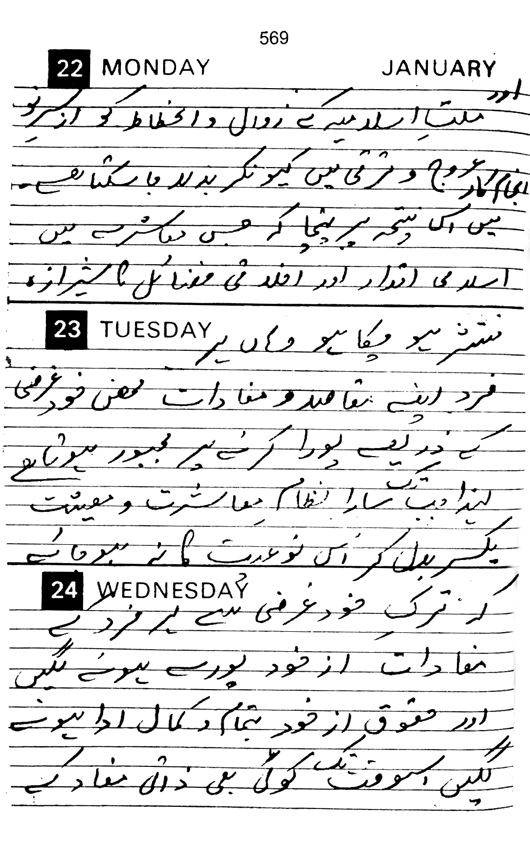 569
22 MONDAY JANUARY
ملتِ اسلامیہ کے زوال و انحطاط کو از سرِ نو اور
انجام کار عروج و ترقی میں کیونکر بدلا جا سکتا ہے۔
میں اس نتیجہ پر پہنچا کہ جس معاشرے میں
اسلامی اقدار اور اخلاقی فضائل کا شیرازہ
23 TUESDAY منتشر ہو چکا ہو وہاں ہر
فرد اپنے مقاصد و مفادات محض خود غرضی
کے ذریعے پورا کرنے پر مجبور ہوتا ہے
لہٰذا جب تک سارا نظام معاشرت و معیشت
یکسر بدل کر اس نوعیت کا نہ ہو جائے
24 WEDNESDAY
کہ ترکِ خود غرضی سے ہر فرد کے
مفادات از خود پورے ہونے لگیں
اور حقوق از خود بتمام و کمال ادا ہونے
لگیں اسوقت تک کوئی بھی ذاتی مفاد کے